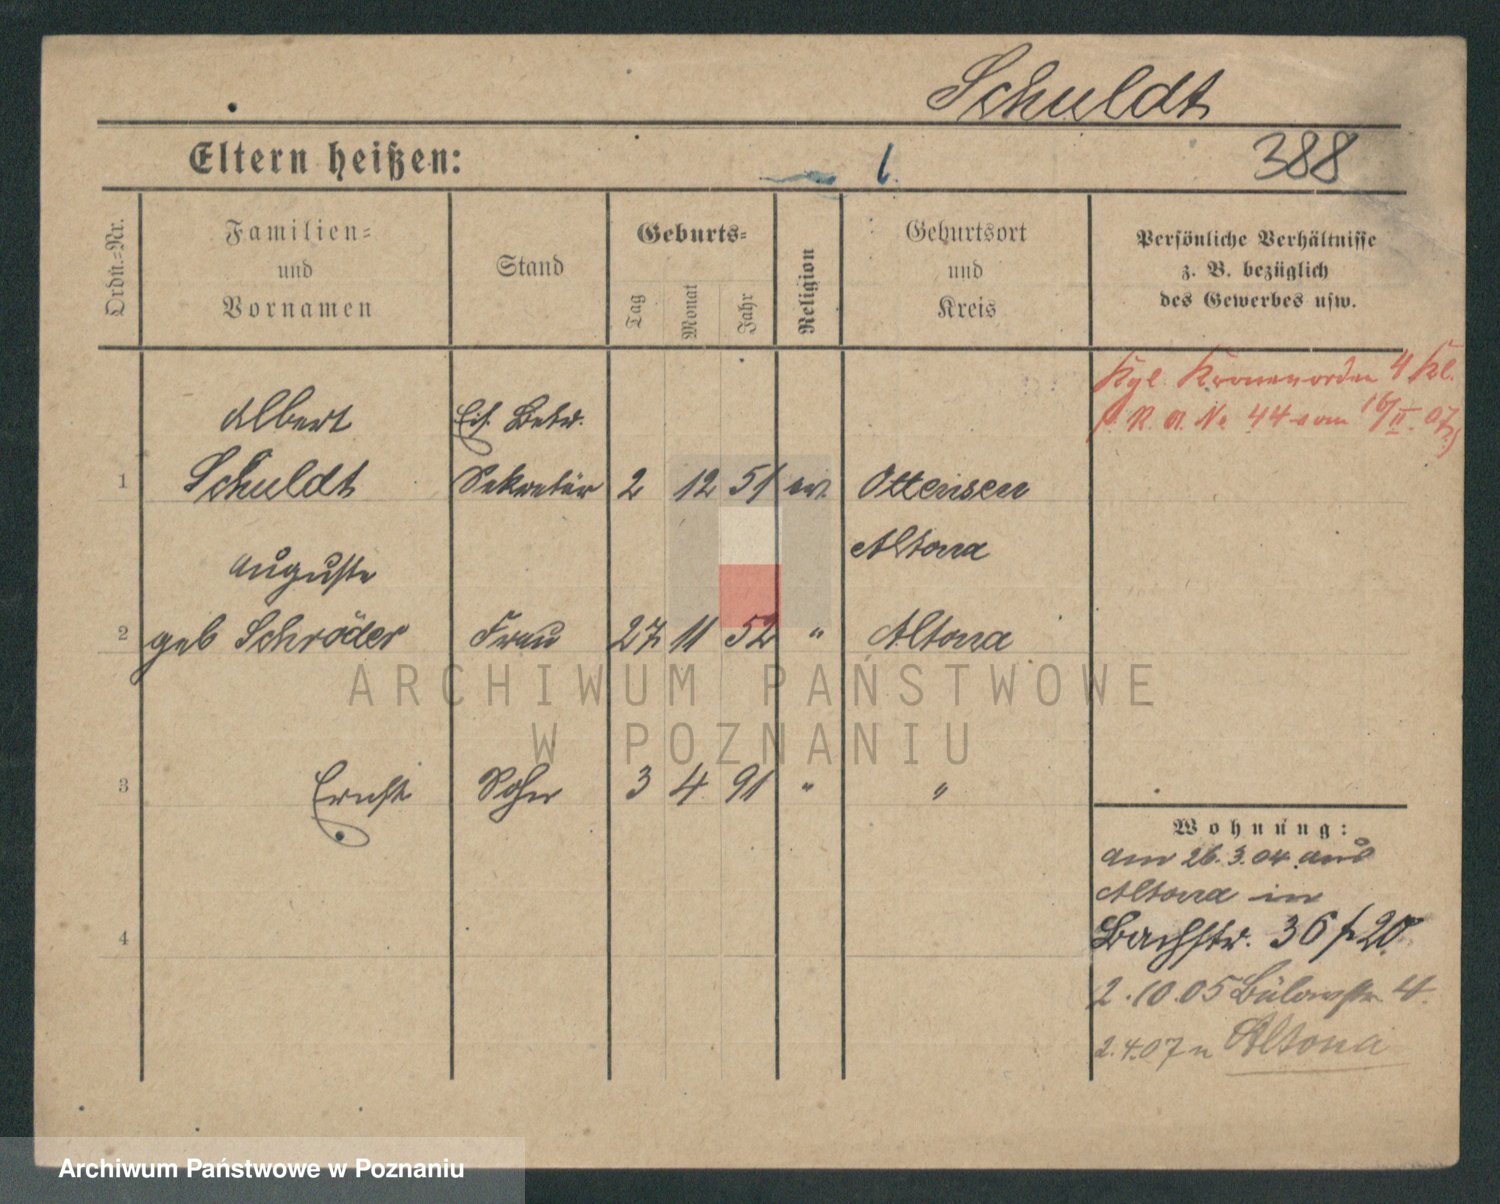 Schuldt
Eltern heißen:
388
Ordn.-Nr.
Familien-
und
Vornamen
Stand
Geburts-
Tag
Monat
Jahr
Religion
Geburtsort
und
Kreis
Persönliche Verhältnisse
z. B. bezüglich
des Gewerbes usw.
Kgl. Kronenorden 4 Kl.
R. A. No 44 vom 16/II. 07
Albert Eis. Betr.
1 Schuldt Sekretär 2 12 51 ev Ottensen
Altona
Auguste
2 geb Schröder Frau 27 11 52 " Altona
ARCHIWUM PAŃSTWOWE
W POZNANIU
3 Ernst Sohn 3 4 91 " "
Wohnung:
am 26.3.04 aus
Altona in
4
Bachstr. 36 20.
2.10.05 Bülowstr. 4.
2.4.07 n Altona
Archiwum Państwowe w Poznaniu